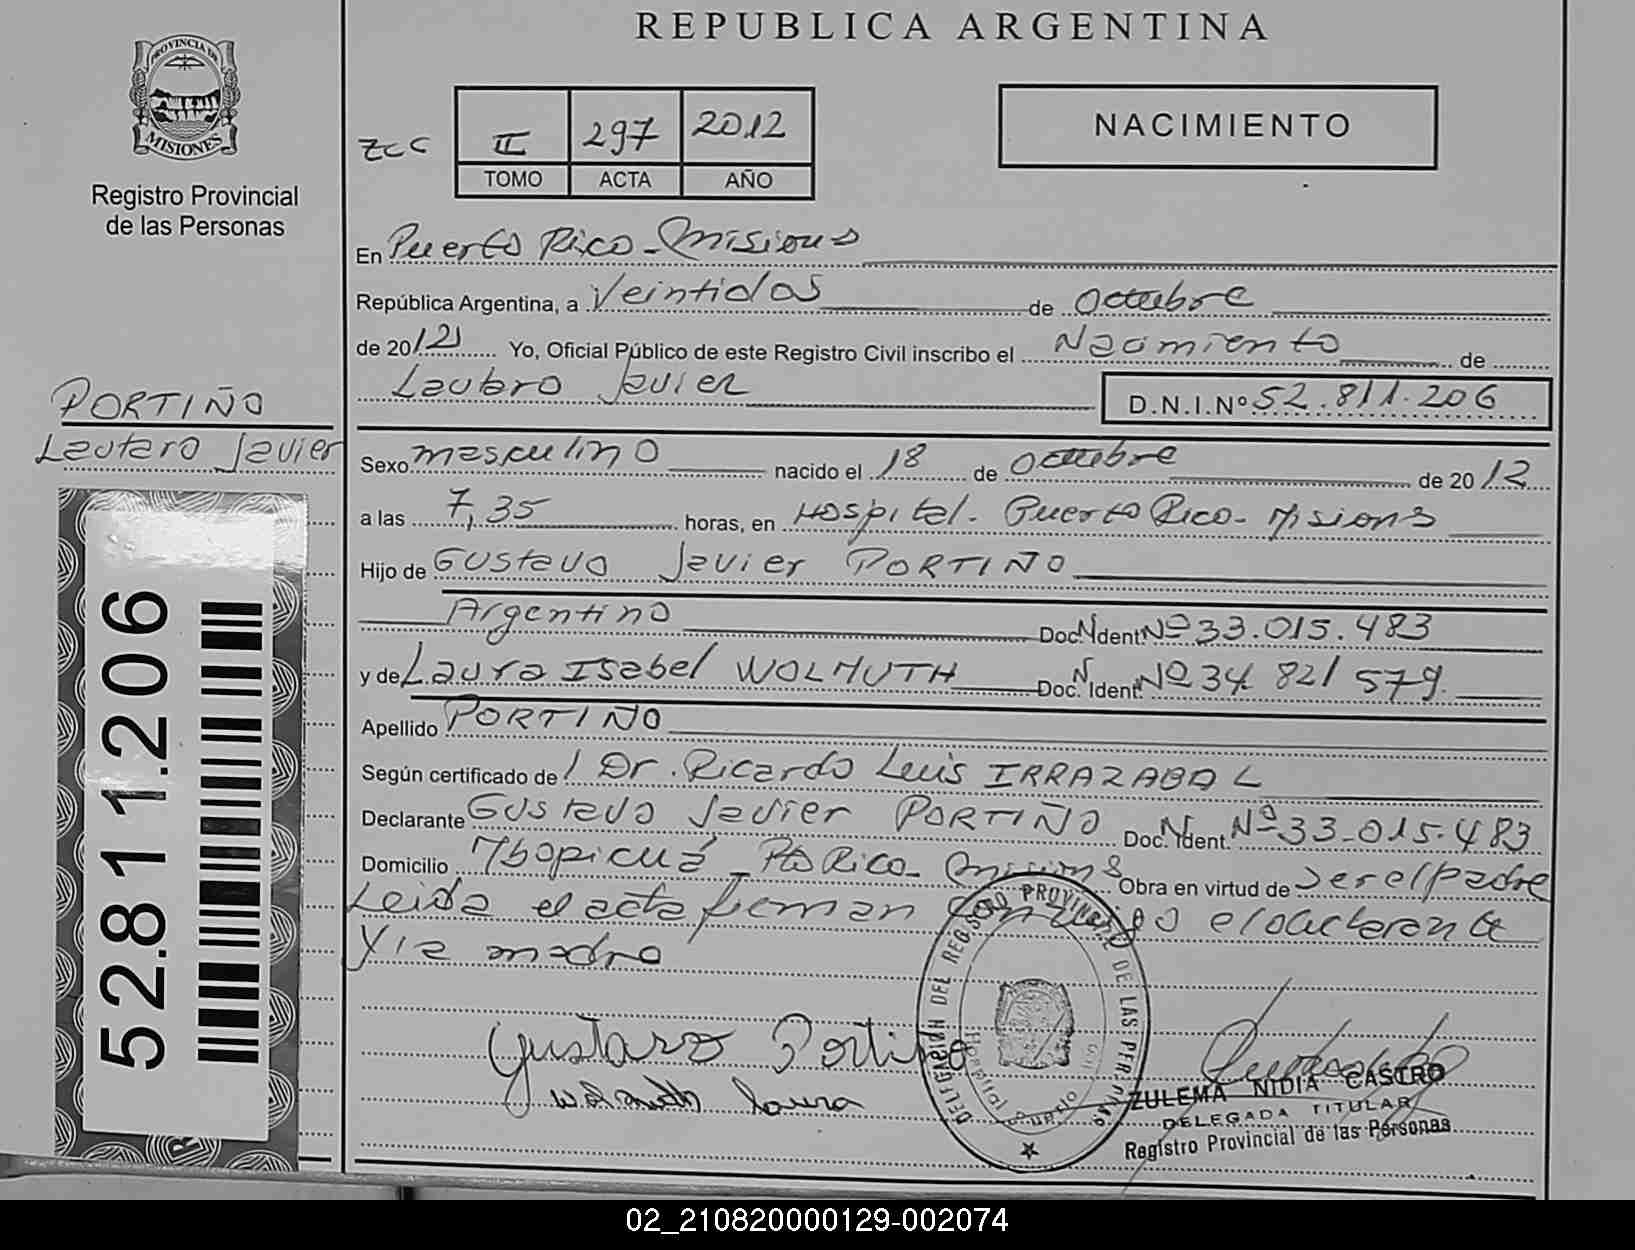 REPUBLICA ARGENTINA
PROVINCIA DE
MISIONES
Registro Provincial
de las Personas
II 297 2012
TOMO ACTA AÑO
NACIMIENTO
En Puerto Rico - Misiones
República Argentina, a Veintidos de Octubre
de 2012 Yo, Oficial Público de este Registro Civil inscribo el Nacimiento de
Lautaro Javier D.N.I.Nº 52.811.206
PORTIÑO
Lautaro Javier
52.811.206
Sexo masculino nacido el 18 de Octubre de 2012
a las 7,35 horas, en Hospital - Puerto Rico - Misiones
Hijo de Gustavo Javier PORTIÑO
Argentino Doc. N Ident. Nº 33.015.483
y de Laura Isabel WOLMUTH Doc. N Ident. Nº 34 821 579
Apellido PORTIÑO
Según certificado del Dr. Ricardo Luis IRRAZABAL
Declarante Gustavo Javier PORTIÑO Doc. N Ident. Nº 33-015.483
Domicilio Mbopicuá - Pto Rico - Misiones Obra en virtud de ser el padre
Leida el acta firman conmigo el declarante
y la madre
Gustavo Portiño
Wolmuth Laura
DELEGACIÓN DEL REGISTRO PROVINCIAL DE LAS PERSONAS
ZULEMA NIDIA CASTRO
DELEGADA TITULAR
Registro Provincial de las Personas
02_210820000129-002074